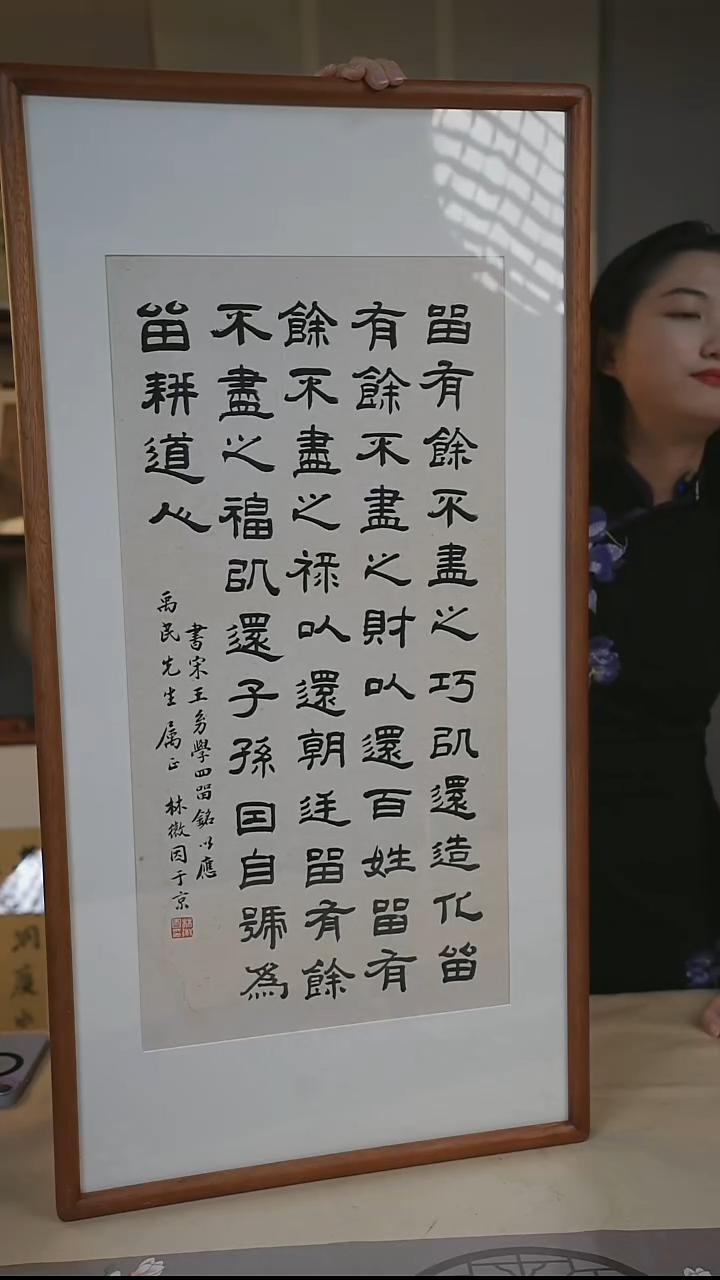 留有餘不盡之巧以還造化留
有餘不盡之財以還百姓留有
餘不盡之禄以還朝廷留有餘
不盡之福以還子孫因自號為
留耕道人
書宋王參學四留銘以應
禹民先生属正 林徽因于京